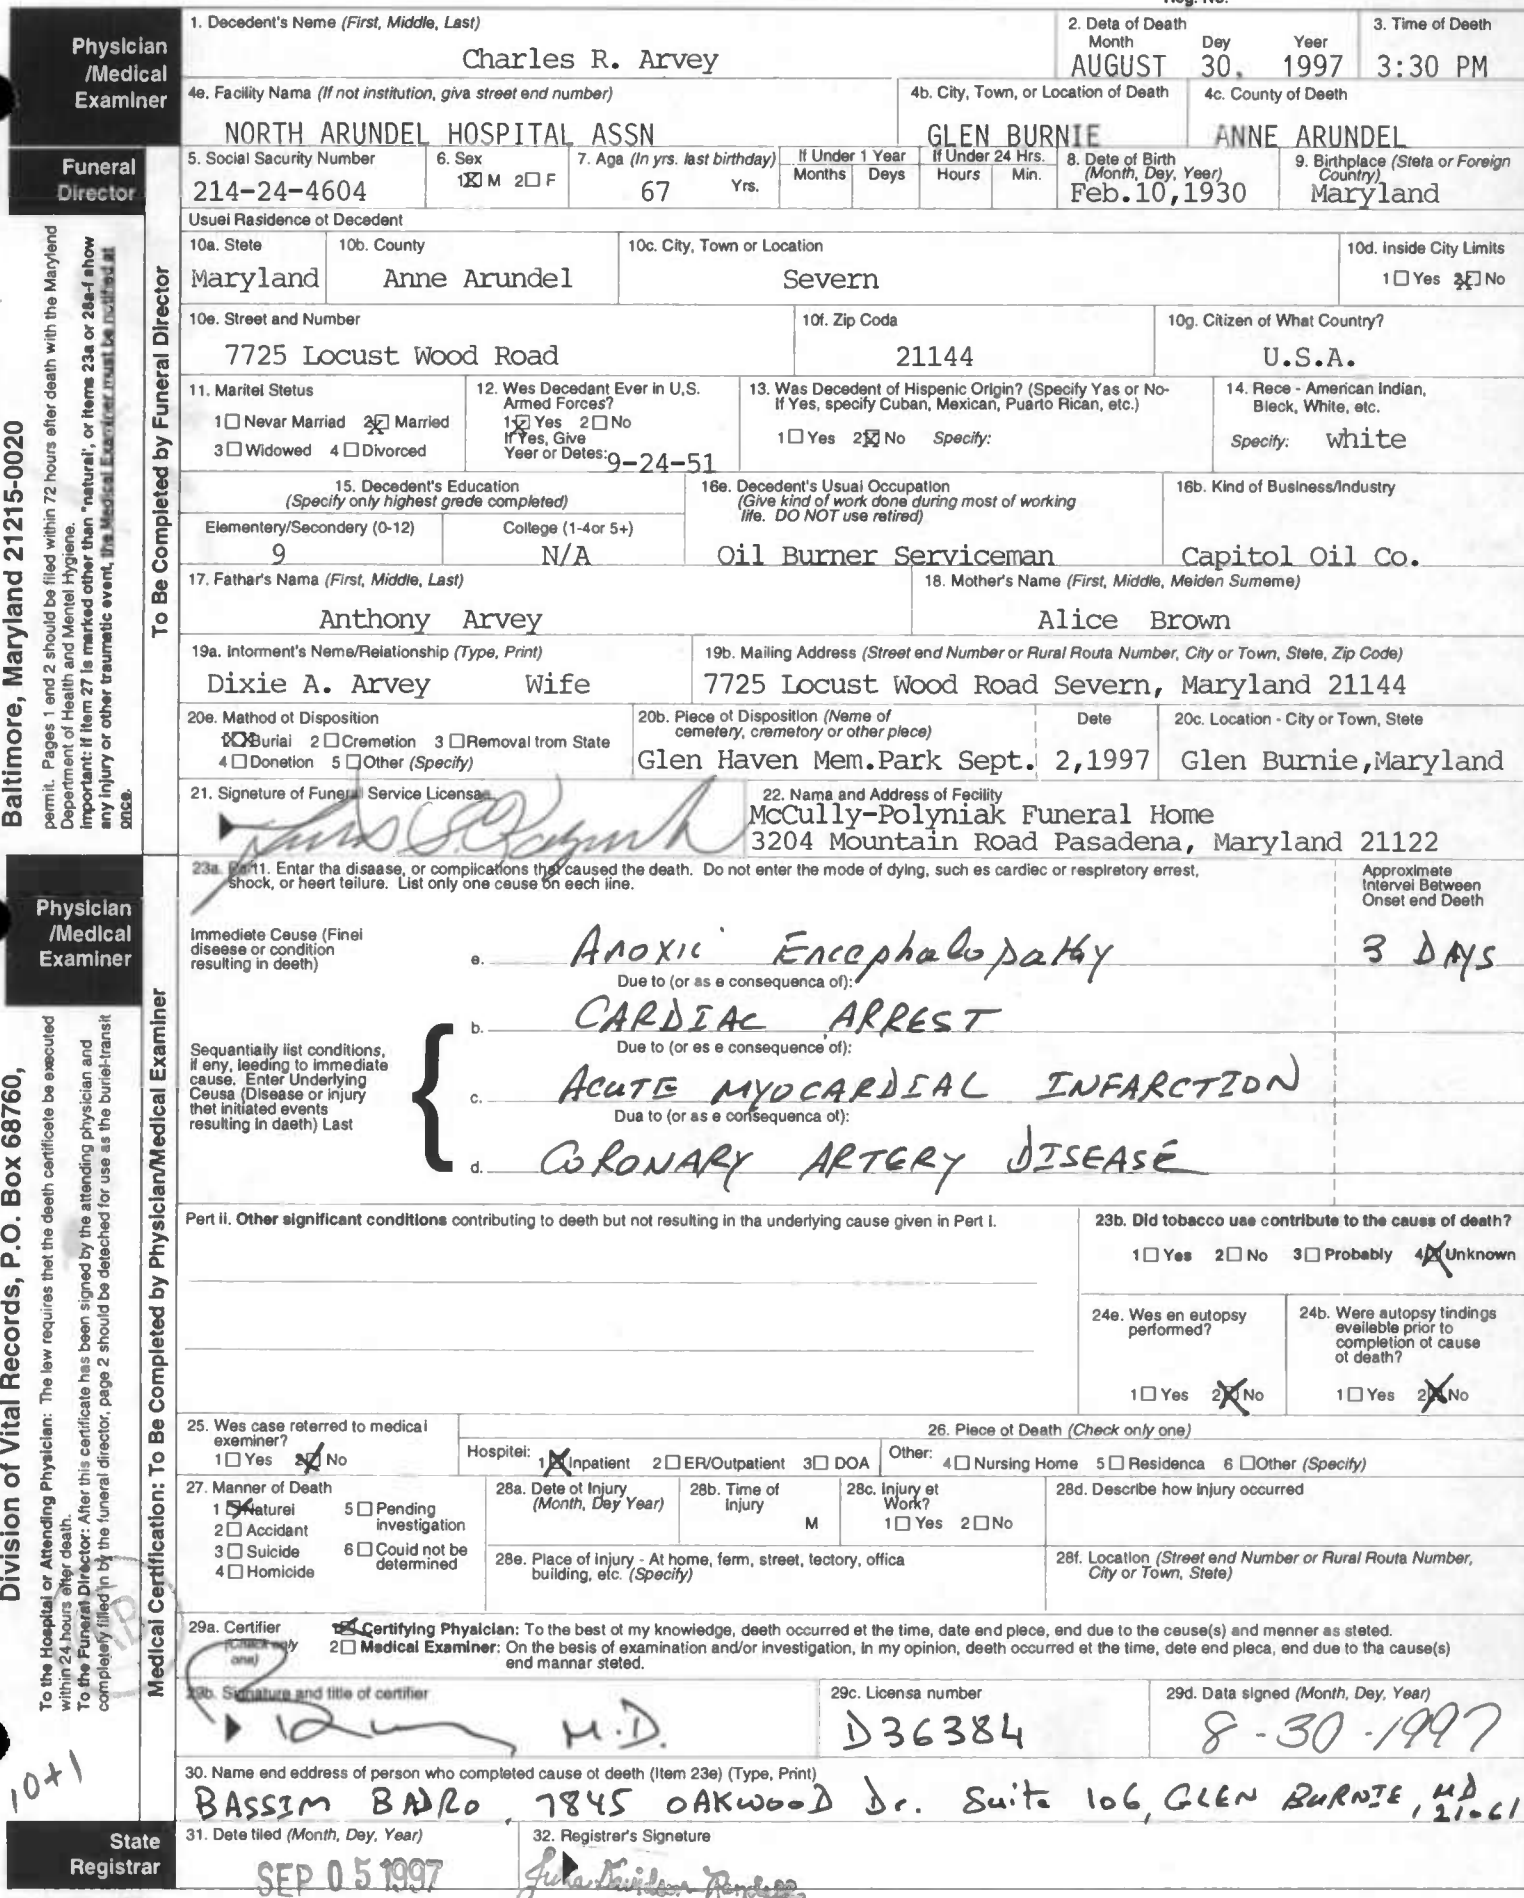 Physician
/Medical
Examiner
1. Decedent's Name (First, Middle, Last)
Charles R. Arvey
2. Date of Death
Month Day Year
AUGUST 30, 1997
3. Time of Death
3:30 PM
4a. Facility Name (If not institution, give street and number)
NORTH ARUNDEL HOSPITAL ASSN
4b. City, Town, or Location of Death
GLEN BURNIE
4c. County of Death
ANNE ARUNDEL
Funeral
Director
5. Social Security Number
214-24-4604
6. Sex
1☒ M 2☐ F
7. Age (In yrs. last birthday)
67 Yrs.
If Under 1 Year
Months Days
If Under 24 Hrs.
Hours Min.
8. Date of Birth
(Month, Day, Year)
Feb.10,1930
9. Birthplace (State or Foreign
Country)
Maryland
Usual Residence of Decedent
10a. State
Maryland
10b. County
Anne Arundel
10c. City, Town or Location
Severn
10d. Inside City Limits
1☐ Yes 2☒ No
10e. Street and Number
7725 Locust Wood Road
10f. Zip Code
21144
10g. Citizen of What Country?
U.S.A.
11. Marital Status
1☐ Never Married 2☒ Married
3☐ Widowed 4☐ Divorced
12. Was Decedent Ever in U.S.
Armed Forces?
1☒ Yes 2☐ No
If Yes, Give
Year or Dates: 9-24-51
13. Was Decedent of Hispanic Origin? (Specify Yes or No-
If Yes, specify Cuban, Mexican, Puerto Rican, etc.)
1☐ Yes 2☒ No Specify:
14. Race - American Indian,
Black, White, etc.
Specify: white
15. Decedent's Education
(Specify only highest grade completed)
Elementary/Secondary (0-12)
9
College (1-4or 5+)
N/A
16a. Decedent's Usual Occupation
(Give kind of work done during most of working
life. DO NOT use retired)
Oil Burner Serviceman
16b. Kind of Business/Industry
Capitol Oil Co.
17. Father's Name (First, Middle, Last)
Anthony Arvey
18. Mother's Name (First, Middle, Maiden Surname)
Alice Brown
19a. Informant's Name/Relationship (Type, Print)
Dixie A. Arvey Wife
19b. Mailing Address (Street and Number or Rural Route Number, City or Town, State, Zip Code)
7725 Locust Wood Road Severn, Maryland 21144
20a. Method of Disposition
1☒ Burial 2☐ Cremation 3☐ Removal from State
4☐ Donation 5☐ Other (Specify)
20b. Place of Disposition (Name of
cemetery, crematory or other place)
Date
Glen Haven Mem.Park Sept. 2,1997
20c. Location - City or Town, State
Glen Burnie,Maryland
21. Signature of Funeral Service Licensee
22. Name and Address of Facility
McCully-Polyniak Funeral Home
3204 Mountain Road Pasadena, Maryland 21122
Physician
/Medical
Examiner
23a. Part1. Enter the disease, or complications that caused the death. Do not enter the mode of dying, such as cardiac or respiratory arrest,
shock, or heart failure. List only one cause on each line.
Approximate
Interval Between
Onset and Death
Immediate Cause (Final
disease or condition
resulting in death)
a. Anoxic Encephalopathy
3 DAYS
Due to (or as a consequence of):
b. CARDIAC ARREST
Due to (or as a consequence of):
Sequentially list conditions,
if any, leading to immediate
cause. Enter Underlying
Cause (Disease or injury
that initiated events
resulting in death) Last
c. ACUTE MYOCARDIAL INFARCTION
Due to (or as a consequence of):
d. CORONARY ARTERY DISEASE
Part ii. Other significant conditions contributing to death but not resulting in the underlying cause given in Part I.
23b. Did tobacco use contribute to the cause of death?
1☐ Yes 2☐ No 3☐ Probably 4☒ Unknown
24a. Was an autopsy
performed?
1☐ Yes 2☒ No
24b. Were autopsy findings
available prior to
completion of cause
of death?
1☐ Yes 2☒ No
25. Was case referred to medical
examiner?
1☐ Yes 2☒ No
26. Place of Death (Check only one)
Hospital: 1☒ Inpatient 2☐ ER/Outpatient 3☐ DOA Other: 4☐ Nursing Home 5☐ Residence 6☐ Other (Specify)
27. Manner of Death
1☒ Natural 5☐ Pending
investigation
2☐ Accident
3☐ Suicide 6☐ Could not be
determined
4☐ Homicide
28a. Date of Injury
(Month, Day Year)
28b. Time of
Injury
M
28c. Injury at
Work?
1☐ Yes 2☐ No
28d. Describe how injury occurred
28e. Place of injury - At home, farm, street, factory, office
building, etc. (Specify)
28f. Location (Street and Number or Rural Route Number,
City or Town, State)
29a. Certifier
(Check only
one)
1☒ Certifying Physician: To the best of my knowledge, death occurred at the time, date and place, and due to the cause(s) and manner as stated.
2☐ Medical Examiner: On the basis of examination and/or investigation, in my opinion, death occurred at the time, date and place, and due to the cause(s)
and manner stated.
29b. Signature and title of certifier
M.D.
29c. License number
D36384
29d. Data signed (Month, Day, Year)
8-30-1997
30. Name and address of person who completed cause of death (Item 23a) (Type, Print)
BASSIM BADRO, 7845 OAKWOOD Dr. Suite 106, GLEN BURNIE, MD
21061
State
Registrar
31. Date filed (Month, Day, Year)
SEP 05 1997
32. Registrar's Signature
Baltimore, Maryland 21215-0020
permit. Pages 1 and 2 should be filed within 72 hours after death with the Maryland
Department of Health and Mental Hygiene.
Important: If item 27 is marked other than "natural", or items 23a or 28a-f show
any injury or other traumatic event, the Medical Examiner must be notified at
once.
To Be Completed by Funeral Director
Division of Vital Records, P.O. Box 68760,
To the Hospital or Attending Physician: The law requires that the death certificate be executed
within 24 hours after death.
To the Funeral Director: After this certificate has been signed by the attending physician and
completely filled in by the funeral director, page 2 should be detached for use as the burial-transit
Medical Certification: To Be Completed by Physician/Medical Examiner
10+1